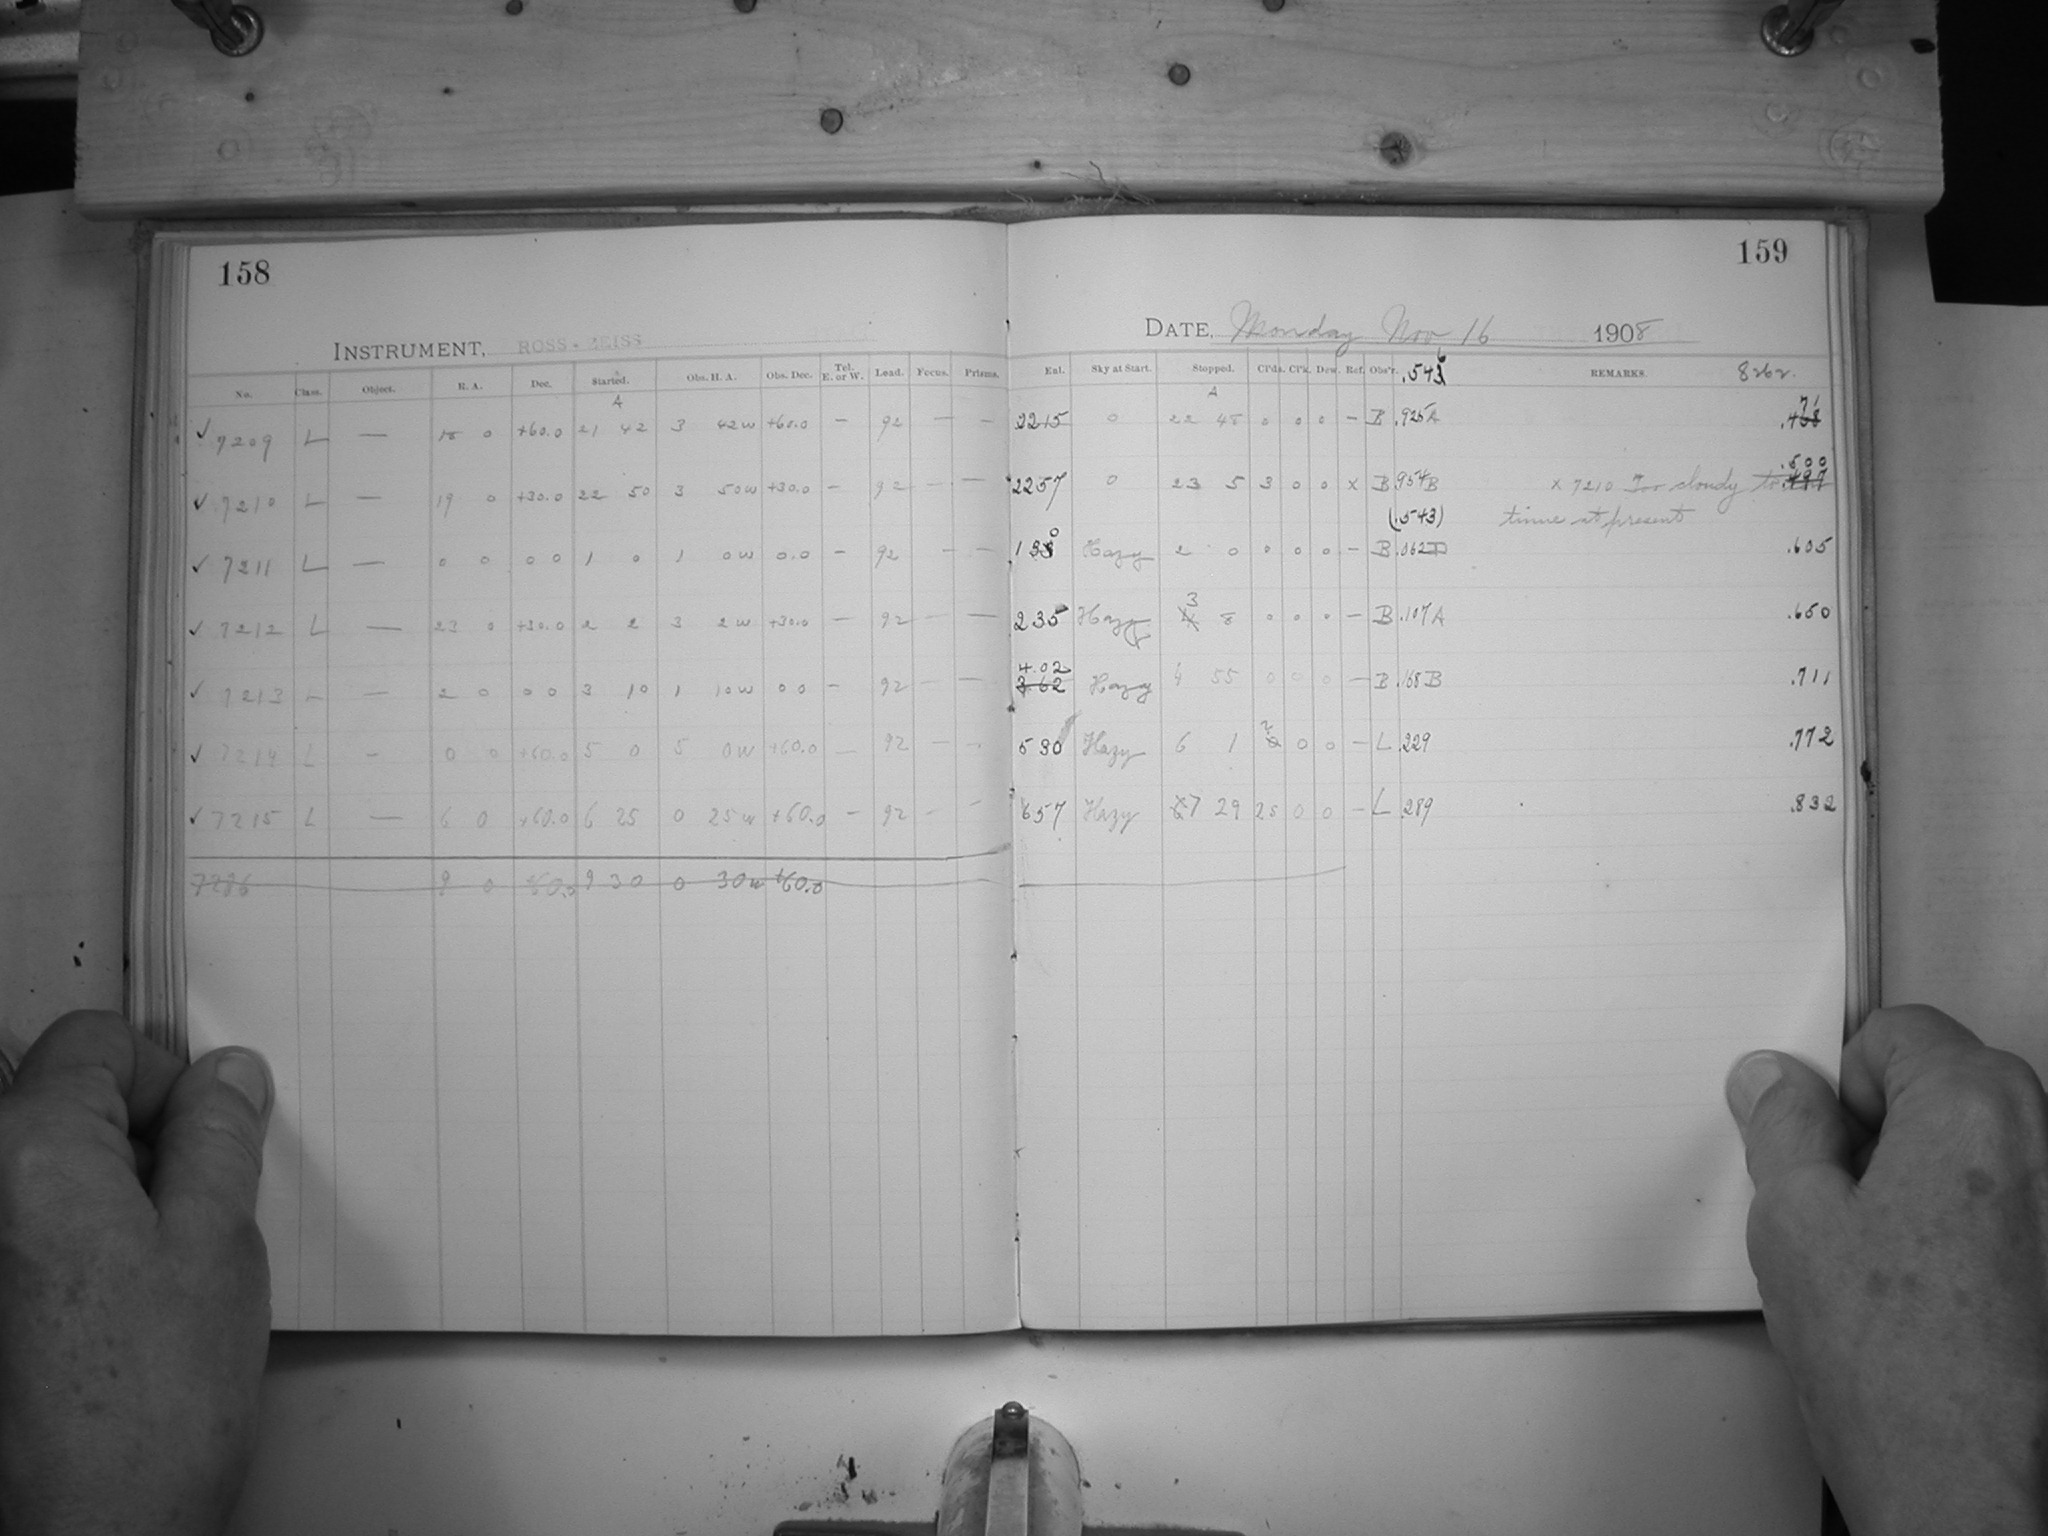 158
159
INSTRUMENT, ROSS-ZEISS
DATE, Monday Nov 16 1908
No. Class. Object. R. A. Dec. Started. Obs. H. A. Obs. Dec. Tel. E. or W. Lead. Focus. Prisms. Ext. Sky at Start. Stopped. Cl'ds. Cl'k. Dew. Ref. Obs'r. .543 6 REMARKS. 8262.
A A
✓ 7209 L — 18 0 +60.0 21 42 3 42w +60.0 — 92 — — 2215 0 22 48 0 0 0 — B .925A .468 71
✓ 7210 L — 19 0 +30.0 22 50 3 50w +30.0 — 92 — — 2257 0 23 5 3 0 0 x B .954B x 7210 Too cloudy to con .497 .500
(.543) tinue at present
✓ 7211 L — 0 0 0 0 1 0 1 0w 0.0 — 92 — — 1 3 0 Hazy 2 0 0 0 0 — B .062 .605
✓ 7212 L — 23 0 +30.0 2 2 3 2w +30.0 — 92 — — 235 Hazy 3 8 0 0 0 — B .107A .650
✓ 7213 L — 2 0 0 0 3 10 1 10w 0 0 — 92 — — 4.02 3 62 Hazy 4 55 0 0 0 — B .168B .711
✓ 7214 L — 0 0 +60.0 5 0 5 0w +60.0 — 92 — — 530 Hazy 6 1 2 0 0 — L .229 .772
✓ 7215 L — 6 0 +60.0 6 25 0 25w +60.0 — 92 — — 657 Hazy 7 29 25 0 0 — L .289 .832
7286 9 0 60.0 9 30 0 30w +60.0